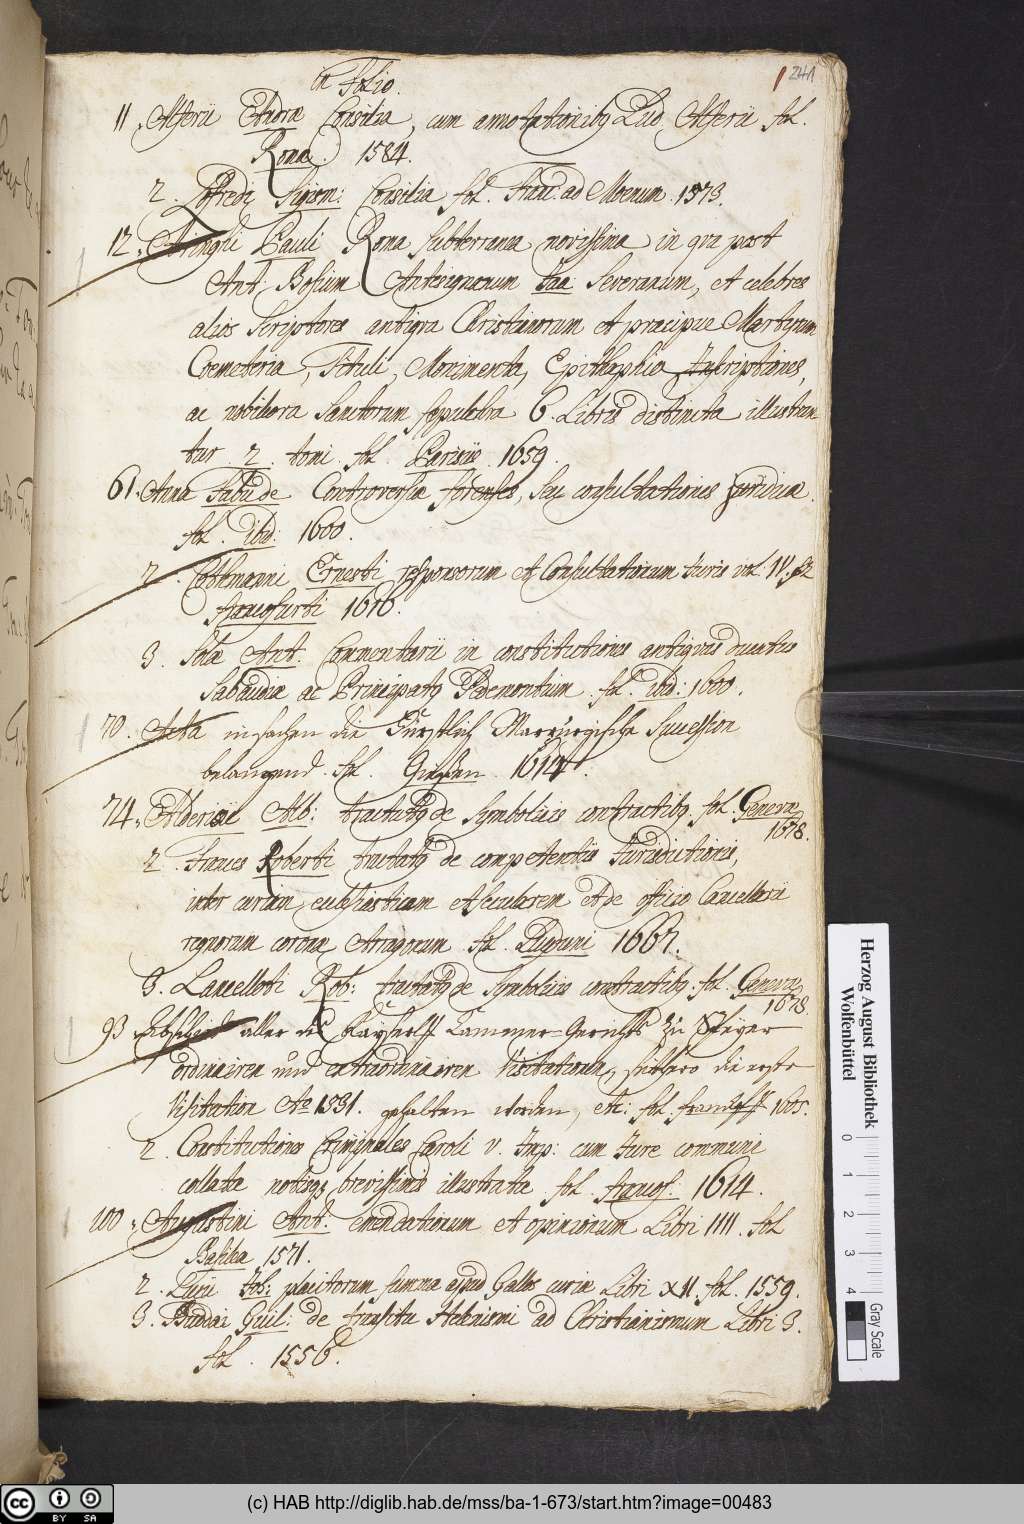 in Folio.
241
11. Alferii Andreæ Consilia, cum annotationibq Lud. Alferii fol.
Romæ. 1584.
2. Loffredi Sigism: Consilia fol. Franc. ad Moenum. 1573.
12. Aringhi Pauli Roma subterranea novissima in qva post
Ant. Bosium Antesignanum Severanum, et celebres
alios Scriptores antiqva Christianorum et præcipue Martyrum
Coemeteria, Tituli, Monimenta, Epithaphia Inscriptiones,
ac nobiliora Sanctorum sepulchra 6. Libris distincta illustran
tur. 2. tomi. fol. Parisiis 1659.
61. Anna Fabii de Controversiæ forenses, seu consultationes juridicæ.
fol. ibid: 1600.
2. Cothmanni Ernesti responsorum et Consultationum Juris vol. IV. fol
francofurti 1616.
3. Solæ Ant. Commentarii in constitutiones antiquas ducatus
Sabaudiæ ac Principatq Pedemontium. fol. ibid: 1600.
70. Acta in sachen die Fürstlich Marpurgische Succession
belangend. fol. Giessen. 1614.
74. Alb: tractatq de Symbolicis contractibq. fol. Genevæ
1678.
2. Roberti tractatq de competentiis Jurisdictionis,
inter curiam ecclesiasticam et secularem et de officio Cancellarii
regnorum coronæ Arragonum. fol. Lugduni 1667.
3. Lancelloti Rob: tractatq de Symbolicis contractibq. fol. Genevæ
1678.
93. Abschied aller des Kayserl Cammer-Gerichts zu Speyer
ordinairen und extraordinairen Visitationen, seithero die erste
Visitation Ao 1531. gehalten worden, etc: fol. 1605.
2. Constitutiones Criminales Caroli V. Imp: cum Jure communi
collatæ notisqs brevissimis illustratæ fol. francof. 1614.
100. Augustini Ant. emendationum et opinionum Libri IIII. fol
Basileæ 1571.
2. Luci Joh: placitorum summæ apud Gallos curiæ Libri XII. fol. 1559.
3. Budæi Guil: de transitu Helenismi ad Christianismum Libri 3.
fol. 1556.
Herzog August Bibliothek
Wolfenbüttel
0 1 2 3 4
Gray Scale
cc BY SA
(c) HAB http://diglib.hab.de/mss/ba-1-673/start.htm?image=00483